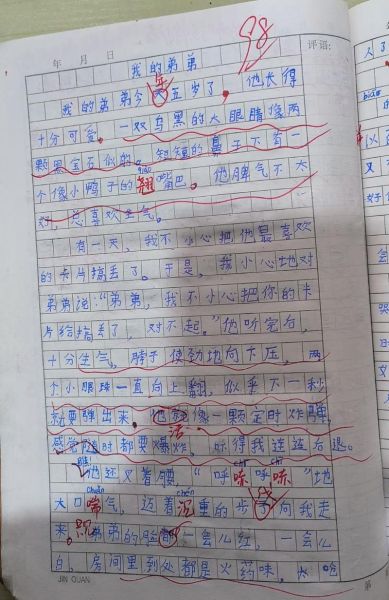 98
年 月 日
评语:
我的弟弟
年
我的弟弟今天五岁了，他长得
十分可爱。一双乌黑的大眼睛像两
颗黑宝石似的。短短的鼻子下有一
个像小鸭子的翘嘴巴。他脾气不太
好，总喜欢生气。
有一天，我不小心把他最喜欢
的卡片搞丢了。于是，我小心地对
弟弟说："弟弟，我不小心把你的卡
片给搞丢了，对不起。"他听完后，
十分生气，脖子使劲地向下压，两
个小眼珠一直向上翻，似乎下一秒
就要弹出来。他像一颗定时炸弹，
活
感觉随时都要爆炸，吓得我连连后退。
他还叉着腰，"呼哧呼哧"地
chuǎn
chén
大口喘气，迈着沉重的步子向我走
来。弟弟的脸都一会儿红，一会儿
白，房间里到处都是火药味。
JIN QUAN
第
biāo